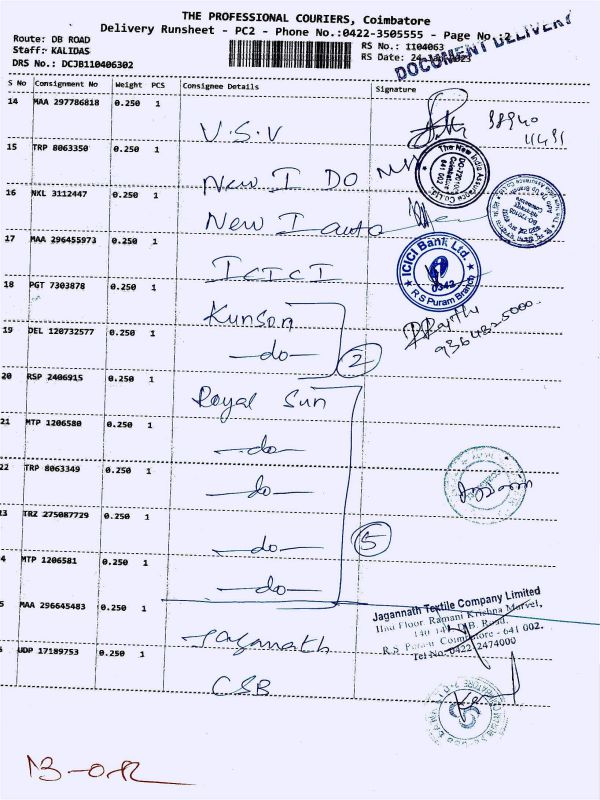 THE PROFESSIONAL COURIERS, Coimbatore
Delivery Runsheet - PC2 - Phone No.:0422-3505555 - Page No.:2
DOCUMENT DELIVERY
Route: DB ROAD
Staff: KALIDAS
DRS No.: DCJB110406302
RS No.: 1104063
RS Date: 24-
S No Consignment No Weight PCS Consignee Details Signature
14 MAA 297786818 0.250 1 V.S.V
15 TRP 8063350 0.250 1 New I DO
The New India Assurance Co. Ltd.
Coimbatore
641 002
16 NKL 3112447 0.250 1 New I auto
17 MAA 296455973 0.250 1 ICICI
ICICI Bank Ltd.
0342
R S Puram Branch
18 PGT 7303878 0.250 1 Kunson
19 DEL 120732577 0.250 1 -do- 2
9364825000
20 RSP 2406915 0.250 1 Royal Sun
21 MTP 1206580 0.250 1 -do-
22 TRP 8063349 0.250 1 -do-
3 TRZ 275087729 0.250 1 -do- 5
4 MTP 1206581 0.250 1 -do-
5 MAA 296645483 0.250 1 Jaganath
Jagannath Textile Company Limited
IInd Floor, Ramani Krishna Marvel,
R.S. Puram Coimbatore - 641 002.
Tel No: 0422-2474000
UDP 17189753 0.250 1 CSB